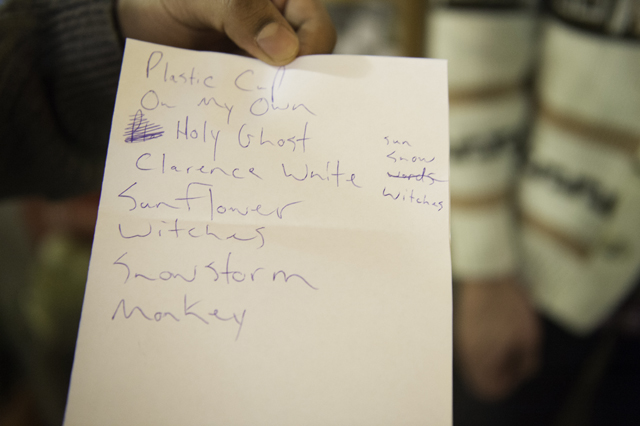 Plastic Cup
On My Own
Holy Ghost
Clarence White
Sunflower
Witches
Snowstorm
Monkey
sun
Snow
words
Witches